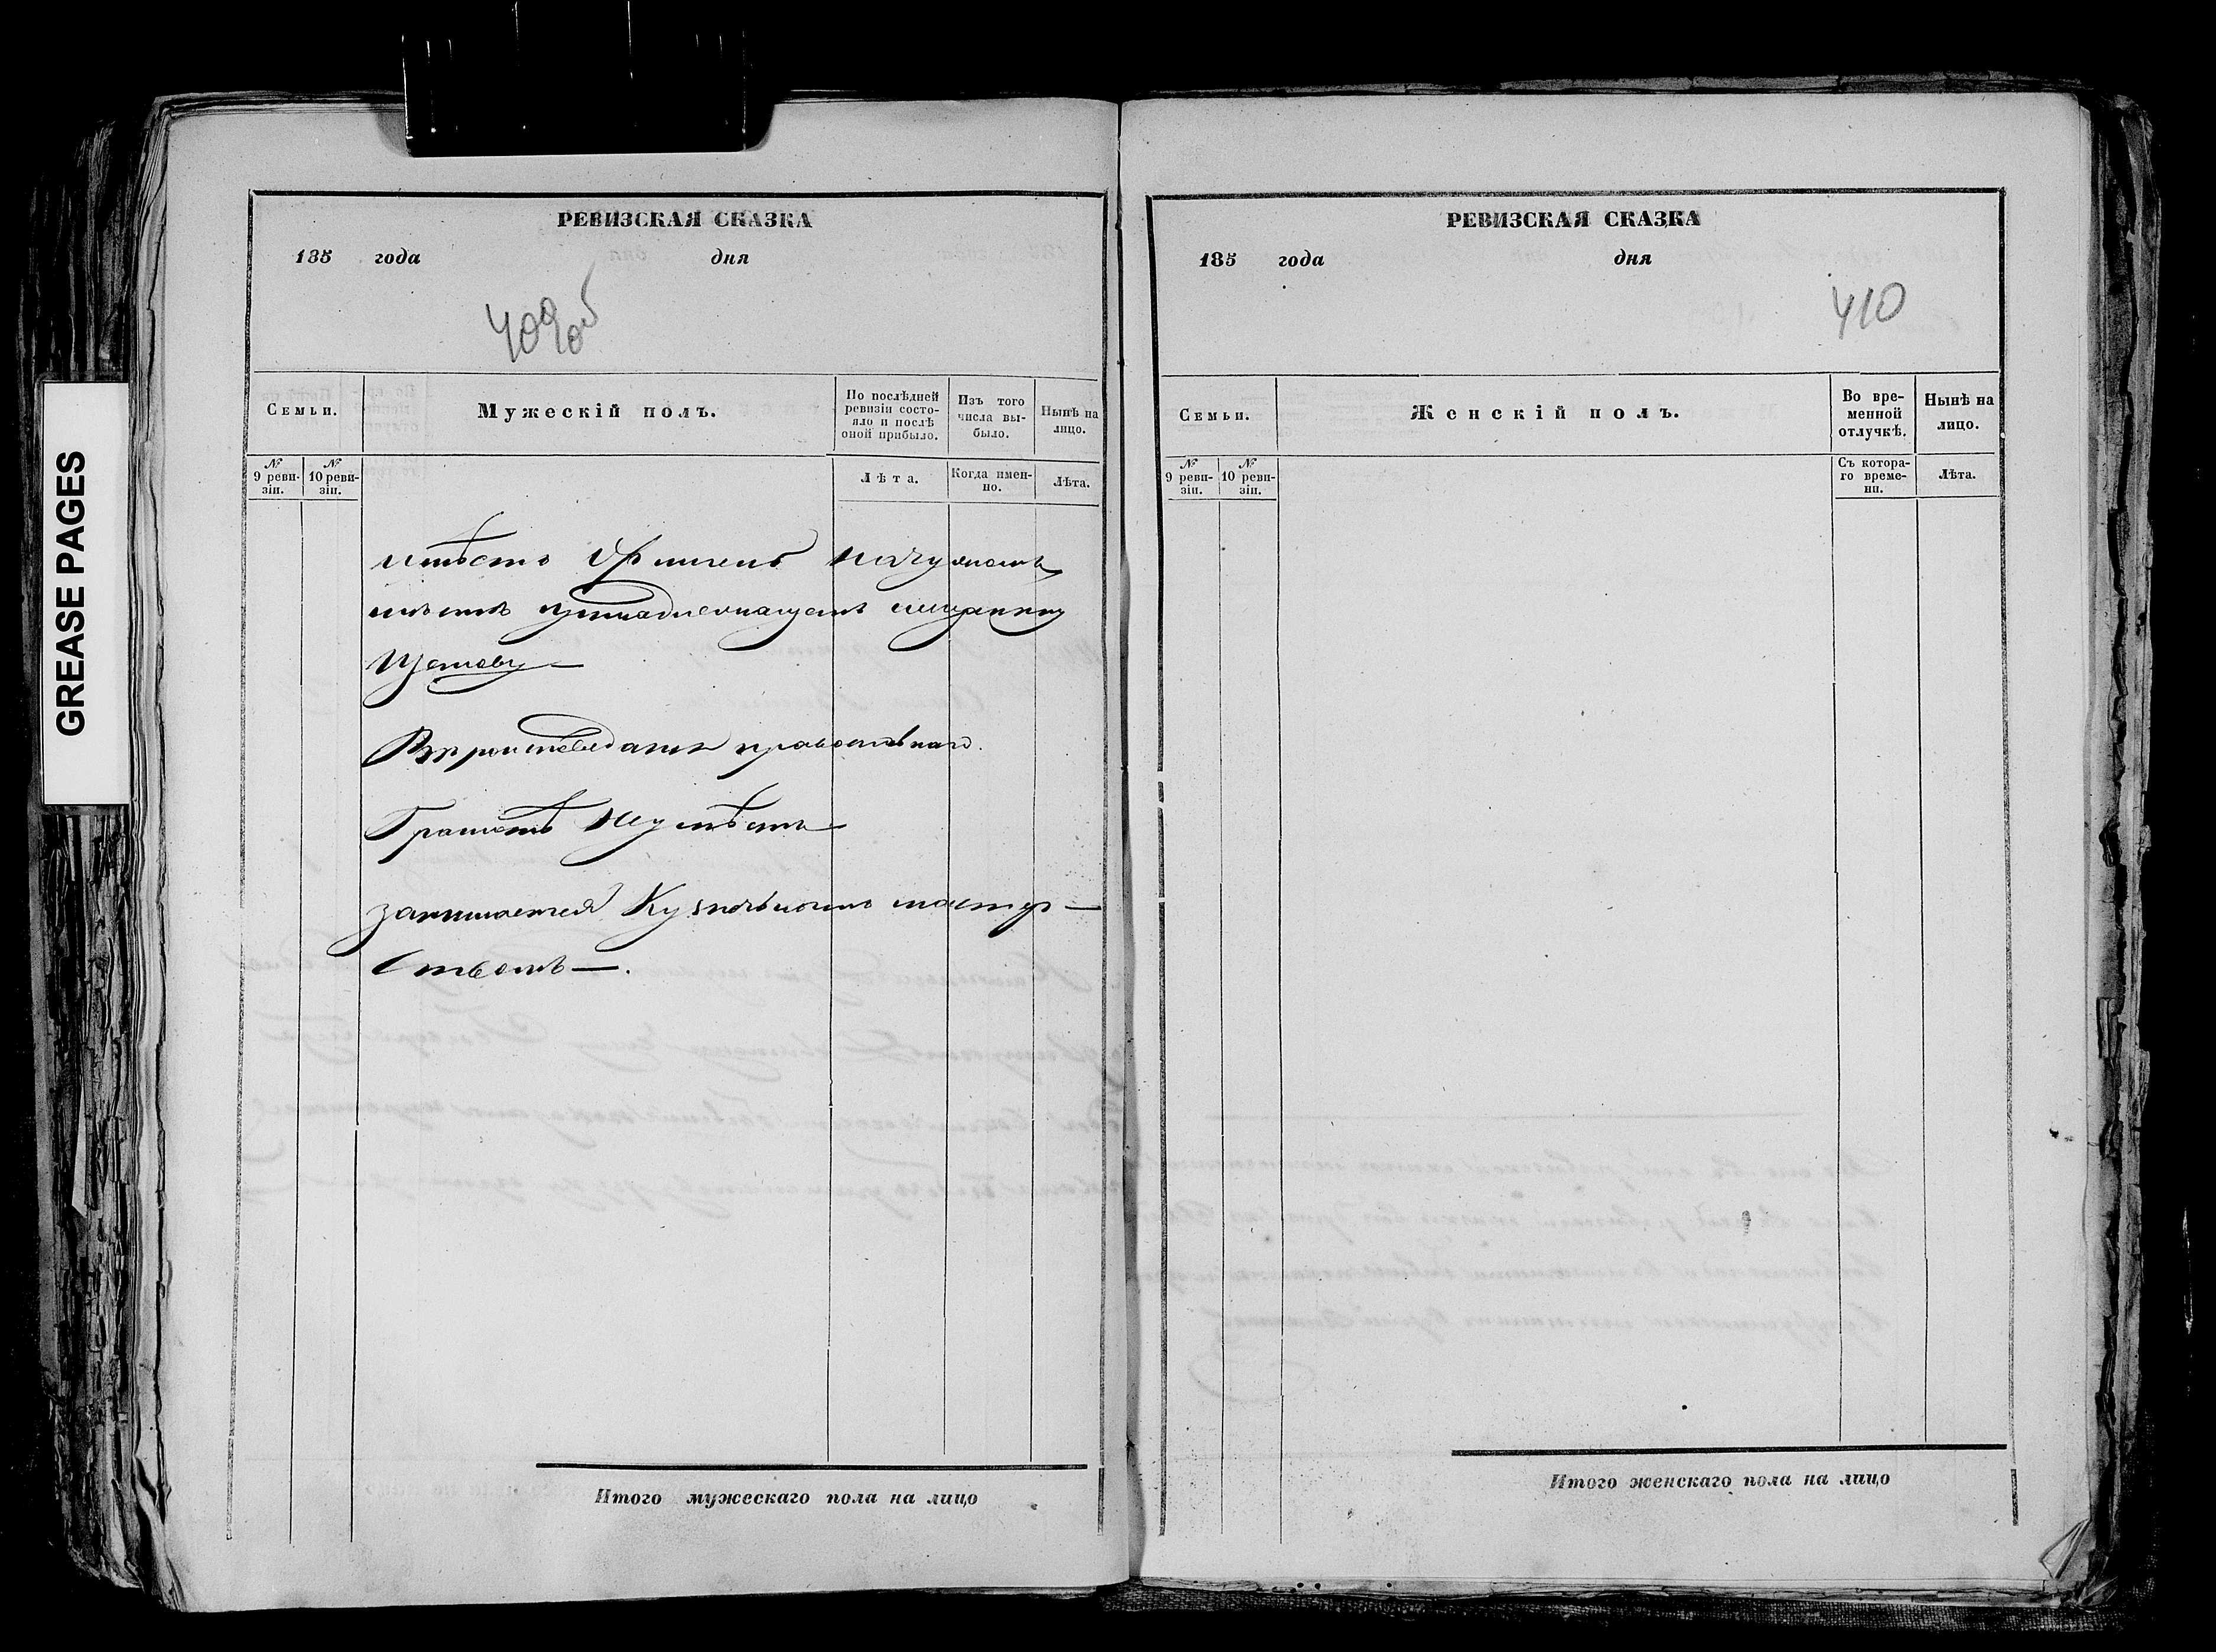 GREASE PAGES
РЕВИЗСКАЯ СКАЗКА
185 года дня
409об
Семьи.
Мужескій полъ.
По послѣдней ревизіи состо-
яло и послѣ
оной прибыло.
Изъ того
числа вы-
было.
Нынѣ на
лицо.
№
9 реви-
зіи.
№
10 реви-
зіи.
Лѣта.
Когда имен-
но.
Лѣта.
имѣетъ домъ на чужомъ
мѣстѣ принадлежащемъ мѣщанину
Вѣроисповѣданія православнаго.
Грамотѣ неумѣетъ
занимается Кузнечнымъ мастер-
ствомъ.
Итого мужескаго пола на лицо
РЕВИЗСКАЯ СКАЗКА
185 года дня
410
Семьи.
Женскій полъ.
Во вре-
менной
отлучкѣ.
Нынѣ на
лицо.
№
9 реви-
зіи.
№
10 реви-
зіи.
Съ котора-
го време-
ни.
Лѣта.
Итого женскаго пола на лицо